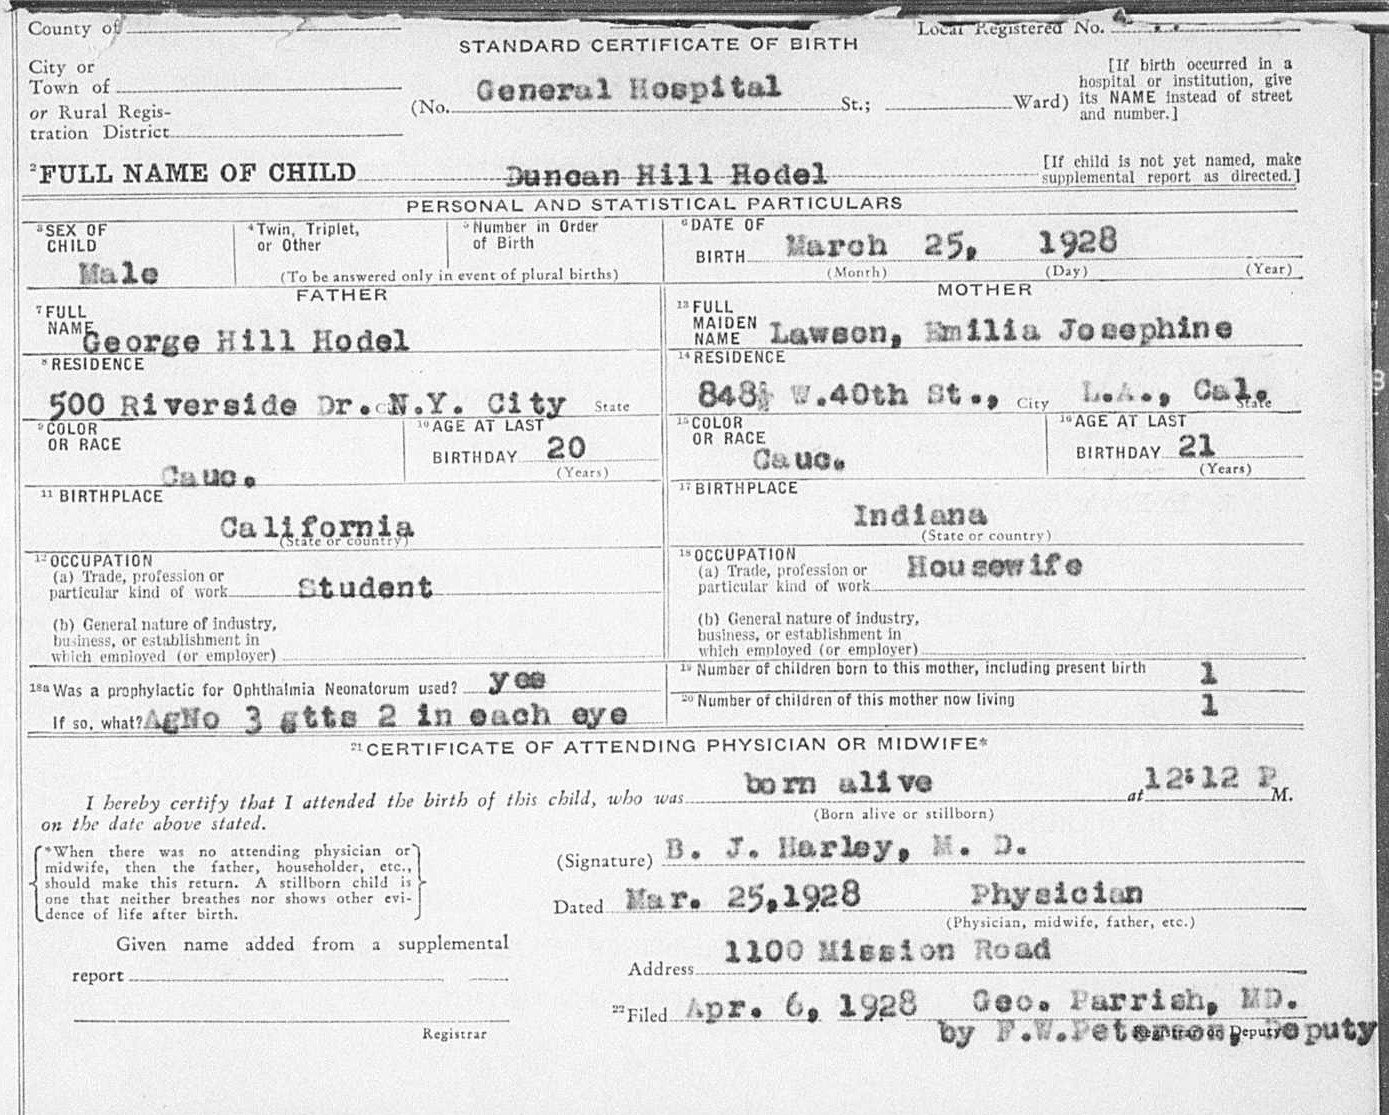 County of
Local Registered No.
STANDARD CERTIFICATE OF BIRTH
City or
Town of
or Rural Regis-
tration District
(No. General Hospital St.; Ward)
[If birth occurred in a
hospital or institution, give
its NAME instead of street
and number.]
2 FULL NAME OF CHILD Duncan Hill Hodel
[If child is not yet named, make
supplemental report as directed.]
PERSONAL AND STATISTICAL PARTICULARS
3 SEX OF
CHILD
Male
4 Twin, Triplet,
or Other
5 Number in Order
of Birth
(To be answered only in event of plural births)
6 DATE OF
BIRTH March 25, 1928
(Month) (Day) (Year)
FATHER
7 FULL
NAME George Hill Hodel
8 RESIDENCE
500 Riverside Dr. N.Y. City State
9 COLOR
OR RACE
Cauc.
10 AGE AT LAST
BIRTHDAY 20
(Years)
11 BIRTHPLACE
California
(State or country)
12 OCCUPATION
(a) Trade, profession or
particular kind of work Student
(b) General nature of industry,
business, or establishment in
which employed (or employer)
MOTHER
13 FULL
MAIDEN
NAME Lawson, Emilia Josephine
14 RESIDENCE
848½ W.40th St., City L.A., Cal. State
15 COLOR
OR RACE
Cauc.
16 AGE AT LAST
BIRTHDAY 21
(Years)
17 BIRTHPLACE
Indiana
(State or country)
18 OCCUPATION
(a) Trade, profession or
particular kind of work Housewife
(b) General nature of industry,
business, or establishment in
which employed (or employer)
18a Was a prophylactic for Ophthalmia Neonatorum used? yes
If so, what? AgNo 3 gtts 2 in each eye
19 Number of children born to this mother, including present birth 1
20 Number of children of this mother now living 1
21 CERTIFICATE OF ATTENDING PHYSICIAN OR MIDWIFE*
I hereby certify that I attended the birth of this child, who was born alive at 12:12 P M.
(Born alive or stillborn)
on the date above stated.
*When there was no attending physician or
midwife, then the father, householder, etc.,
should make this return. A stillborn child is
one that neither breathes nor shows other evi-
dence of life after birth.
(Signature) B. J. Harley, M. D.
Dated Mar. 25,1928 Physician
(Physician, midwife, father, etc.)
Given name added from a supplemental
report
Registrar
Address 1100 Mission Road
22 Filed Apr. 6, 1928 Geo. Parrish, MD.
by F.W.Peterson, Deputy
Registrar or Deputy